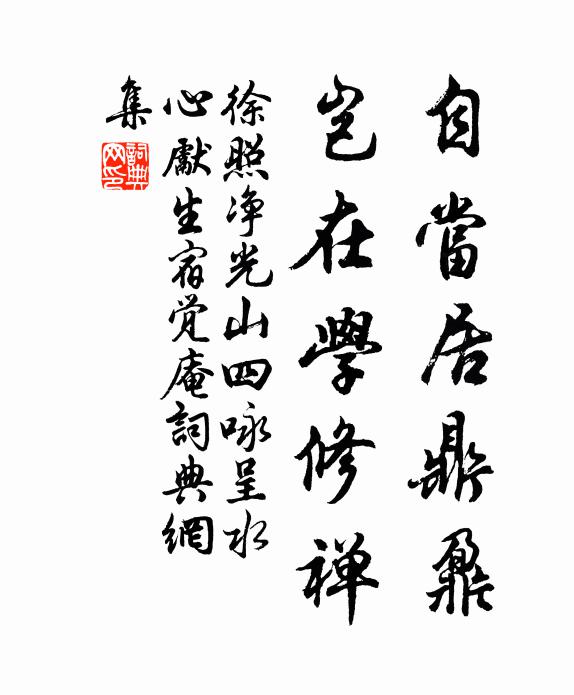 自當居鼎鼐
豈在學修禅
徐照净光山四咏呈水
心獻生宿觉庵詞典網
集
詞典网印